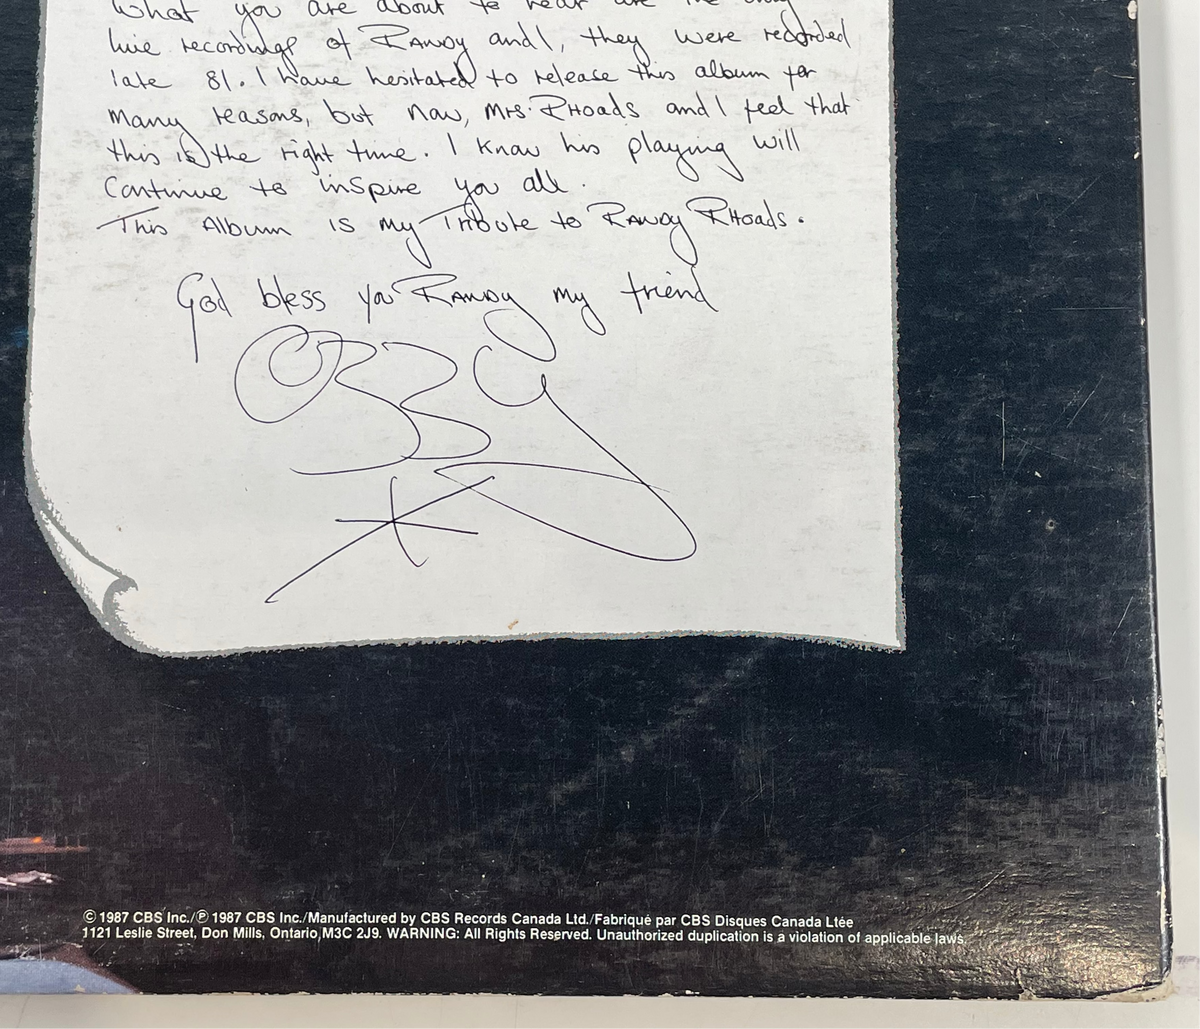 What you are about to hear are the only
live recordings of RANDY and I, they were recorded
late 81. I have hesitated to release this album for
many reasons, but now, Mrs. RHOADS and I feel that
this is the right time. I know his playing will
Continue to inspire you all.
This Album is my Tribute to RANDY RHoads.
God bless you RANDY my friend
OZZY
© 1987 CBS Inc./℗ 1987 CBS Inc./Manufactured by CBS Records Canada Ltd./Fabriqué par CBS Disques Canada Ltée
1121 Leslie Street, Don Mills, Ontario,M3C 2J9. WARNING: All Rights Reserved. Unauthorized duplication is a violation of applicable laws.